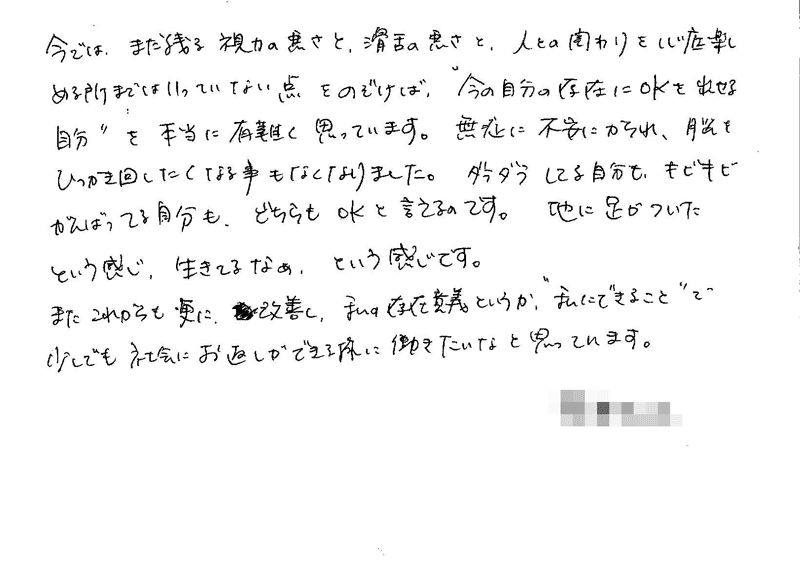 今では、まだ残る視力の悪さと、滑舌の悪さと、人との関わりを心底楽し
める所まではいっていない点をのぞけば、“今の自分の存在にOKを出せる
自分”を本当に有難く思っています。無性に不安にかられ、脳を
ひっかき回したくなる事もなくなりました。ダラダラしてる自分も、キビキビ
がんばってる自分も、どちらもOKと言えるのです。地に足がついた
という感じ、生きてるなぁ、という感じです。
またこれからも更に、改善し、私の存在意義というか、“私にできること”で
少しでも社会にお返しができる様に働きたいなと思っています。